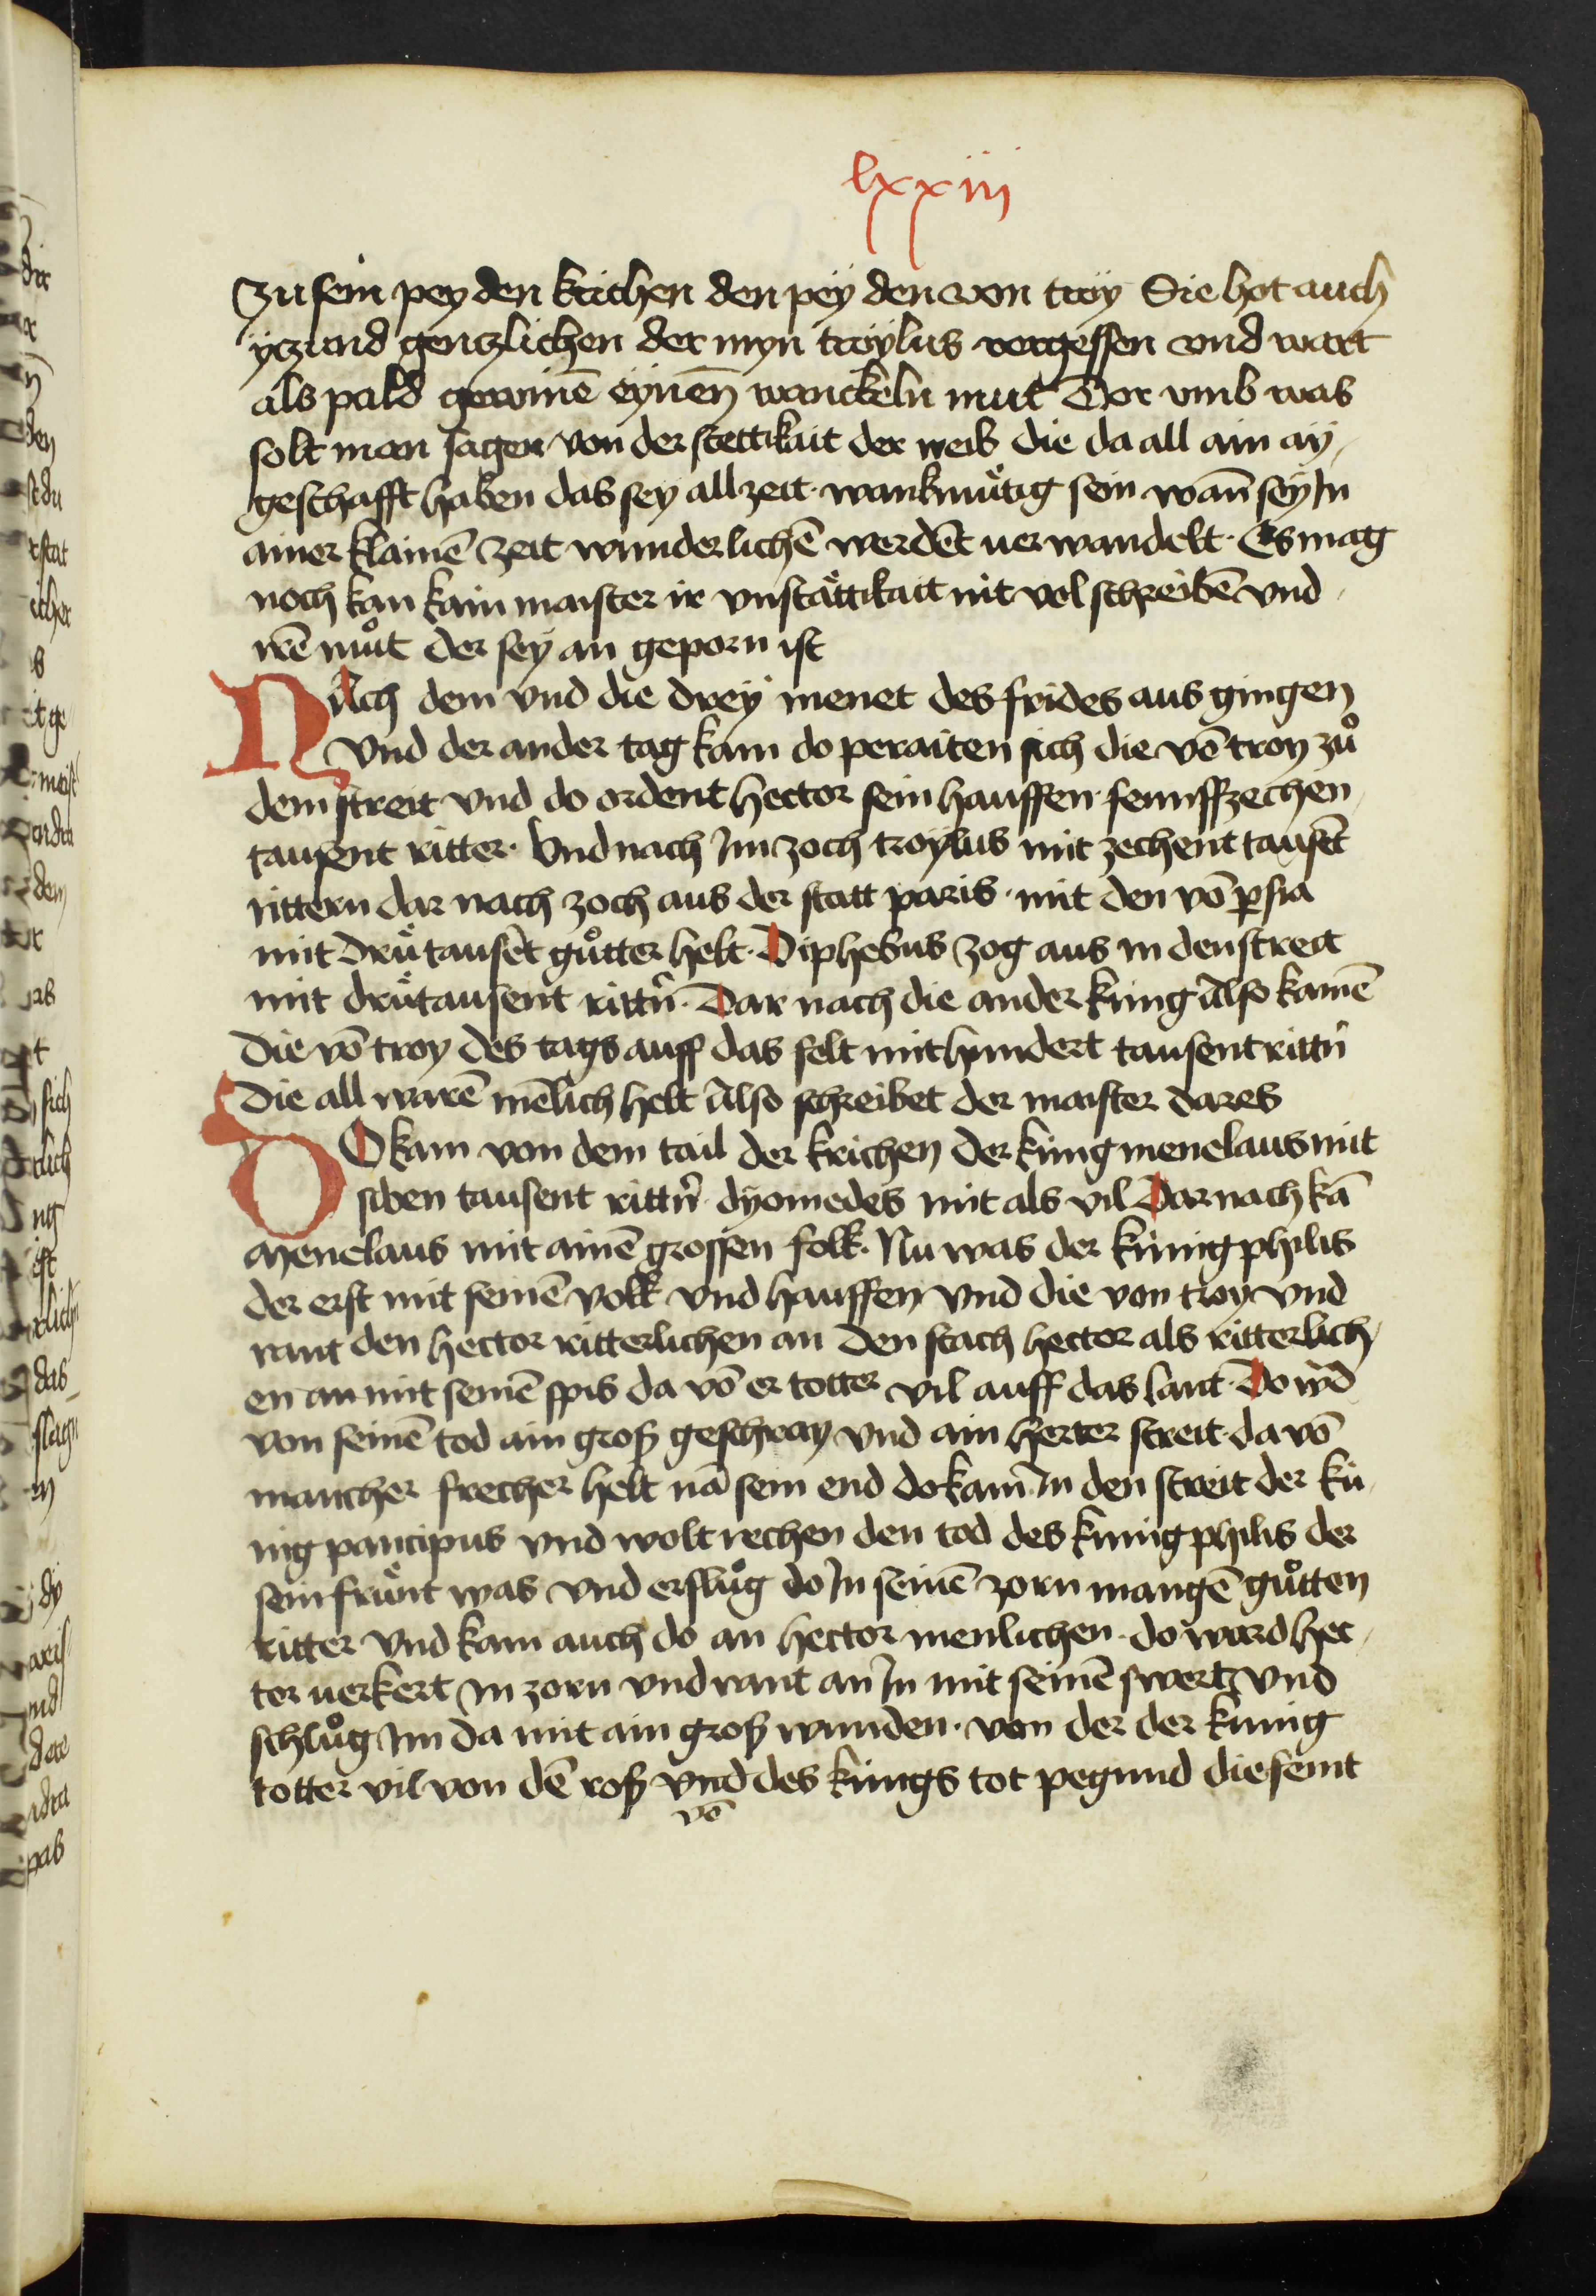 lxxiii
zu sein pey den krichen den pey den von troy Sie hot auch
yczund genczlichen der myn troylus vergessen vnd wart
als pald gewinē eynen wanckeln mut Dor vmb was
solt man sagen von der stettikait der weib die da all ain ay
geschafft haben das sey all zeit wankmuͤtig sein wan̄ sey Jn
ainer klainē zeit wunderlichē werdēt uer wandelt Es mag
noch kan kain maister ir vnstaͤttikait nit vol schreibē vnd
wē muͦt der sey an geporn ist
NAch dem vnd die drey menet des frides aus gingen
Vnd der ander tag kam do peraiten sich die vō troy zuͦ
dem streit vnd do ordent hector sein hauffen funffzechen
tausent ritter Vnd nach Jm zoch troylus mit zechent tausēt
rittern dar nach zoch aus der statt paris mit den vō ꝑsia
mit druͤ tausēt guͦtter helt Diphebus zog aus in den streit
mit druͤ tausent rittn̄ Dar nach die ander kung Also kamē
die vō troy des tags auff das felt mit hundert tausent rittn̄
Die all warē mēlich helt Also schreibet der maister dares
DO kam von dem tail der krichen der kung menelaus mit
siben tausent rittn̄ dyomedes mit als vil Dar nach kā
Menelaus mit ainē grossen folk Nu was der kunig philis
der erst mit seinē volk vnd hauffen vnd die von troy vnd
rant den hector ritterlichen an Den stach hector als ritterlich
en an mit seinē spis da vō er totter vil auff das lant Do wd
von seinē tod ain groß geschray vnd ain herter streit da vō
mancher frecher helt nā sein end do kam Jn den streit der ku
nig pantipus vnd wolt rechen den tod des kunig philis der
sein fruͤnt was vnd ersluͦg do Jn seinē zorn mangē guͦtten
ritter Vnd kam auch do an hector menlichen do ward hec
tor uerkert Jn zorn vnd rant an Jn mit seinē swert vnd
schluͦg Jm da mit ain groß wunden von der der kunig
totter vil von dē roß vnd des kungs tot pegund die seint
vō